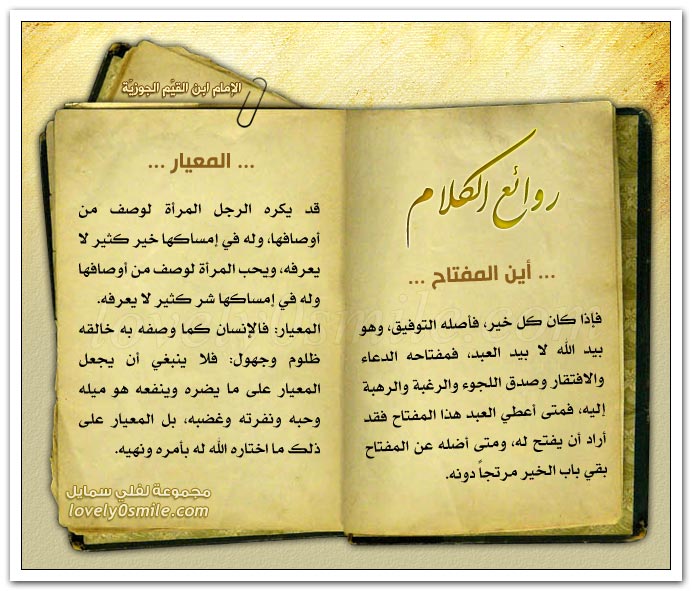 الإمام ابن القيَّم الجوزيَّة
روائع الكلام
... أين المفتاح ...
فإذا كان كل خير، فأصله التوفيق، وهو
بيد الله لا بيد العبد، فمفتاحه الدعاء
والافتقار وصدق اللجوء والرغبة والرهبة
إليه، فمتى أعطي العبد هذا المفتاح فقد
أراد أن يفتح له، ومتى أضله عن المفتاح
بقي باب الخير مرتجاً دونه.
... المعيار ...
قد يكره الرجل المرأة لوصف من
أوصافها، وله في إمساكها خير كثير لا
يعرفه، ويحب المرأة لوصف من أوصافها
وله في إمساكها شر كثير لا يعرفه.
المعيار: فالإنسان كما وصفه به خالقه
ظلوم وجهول: فلا ينبغي أن يجعل
المعيار على ما يضره وينفعه هو ميله
وحبه ونفرته وغضبه، بل المعيار على
ذلك ما اختاره الله له بأمره ونهيه.
مجموعة لفلي سمايل
lovely0smile.com